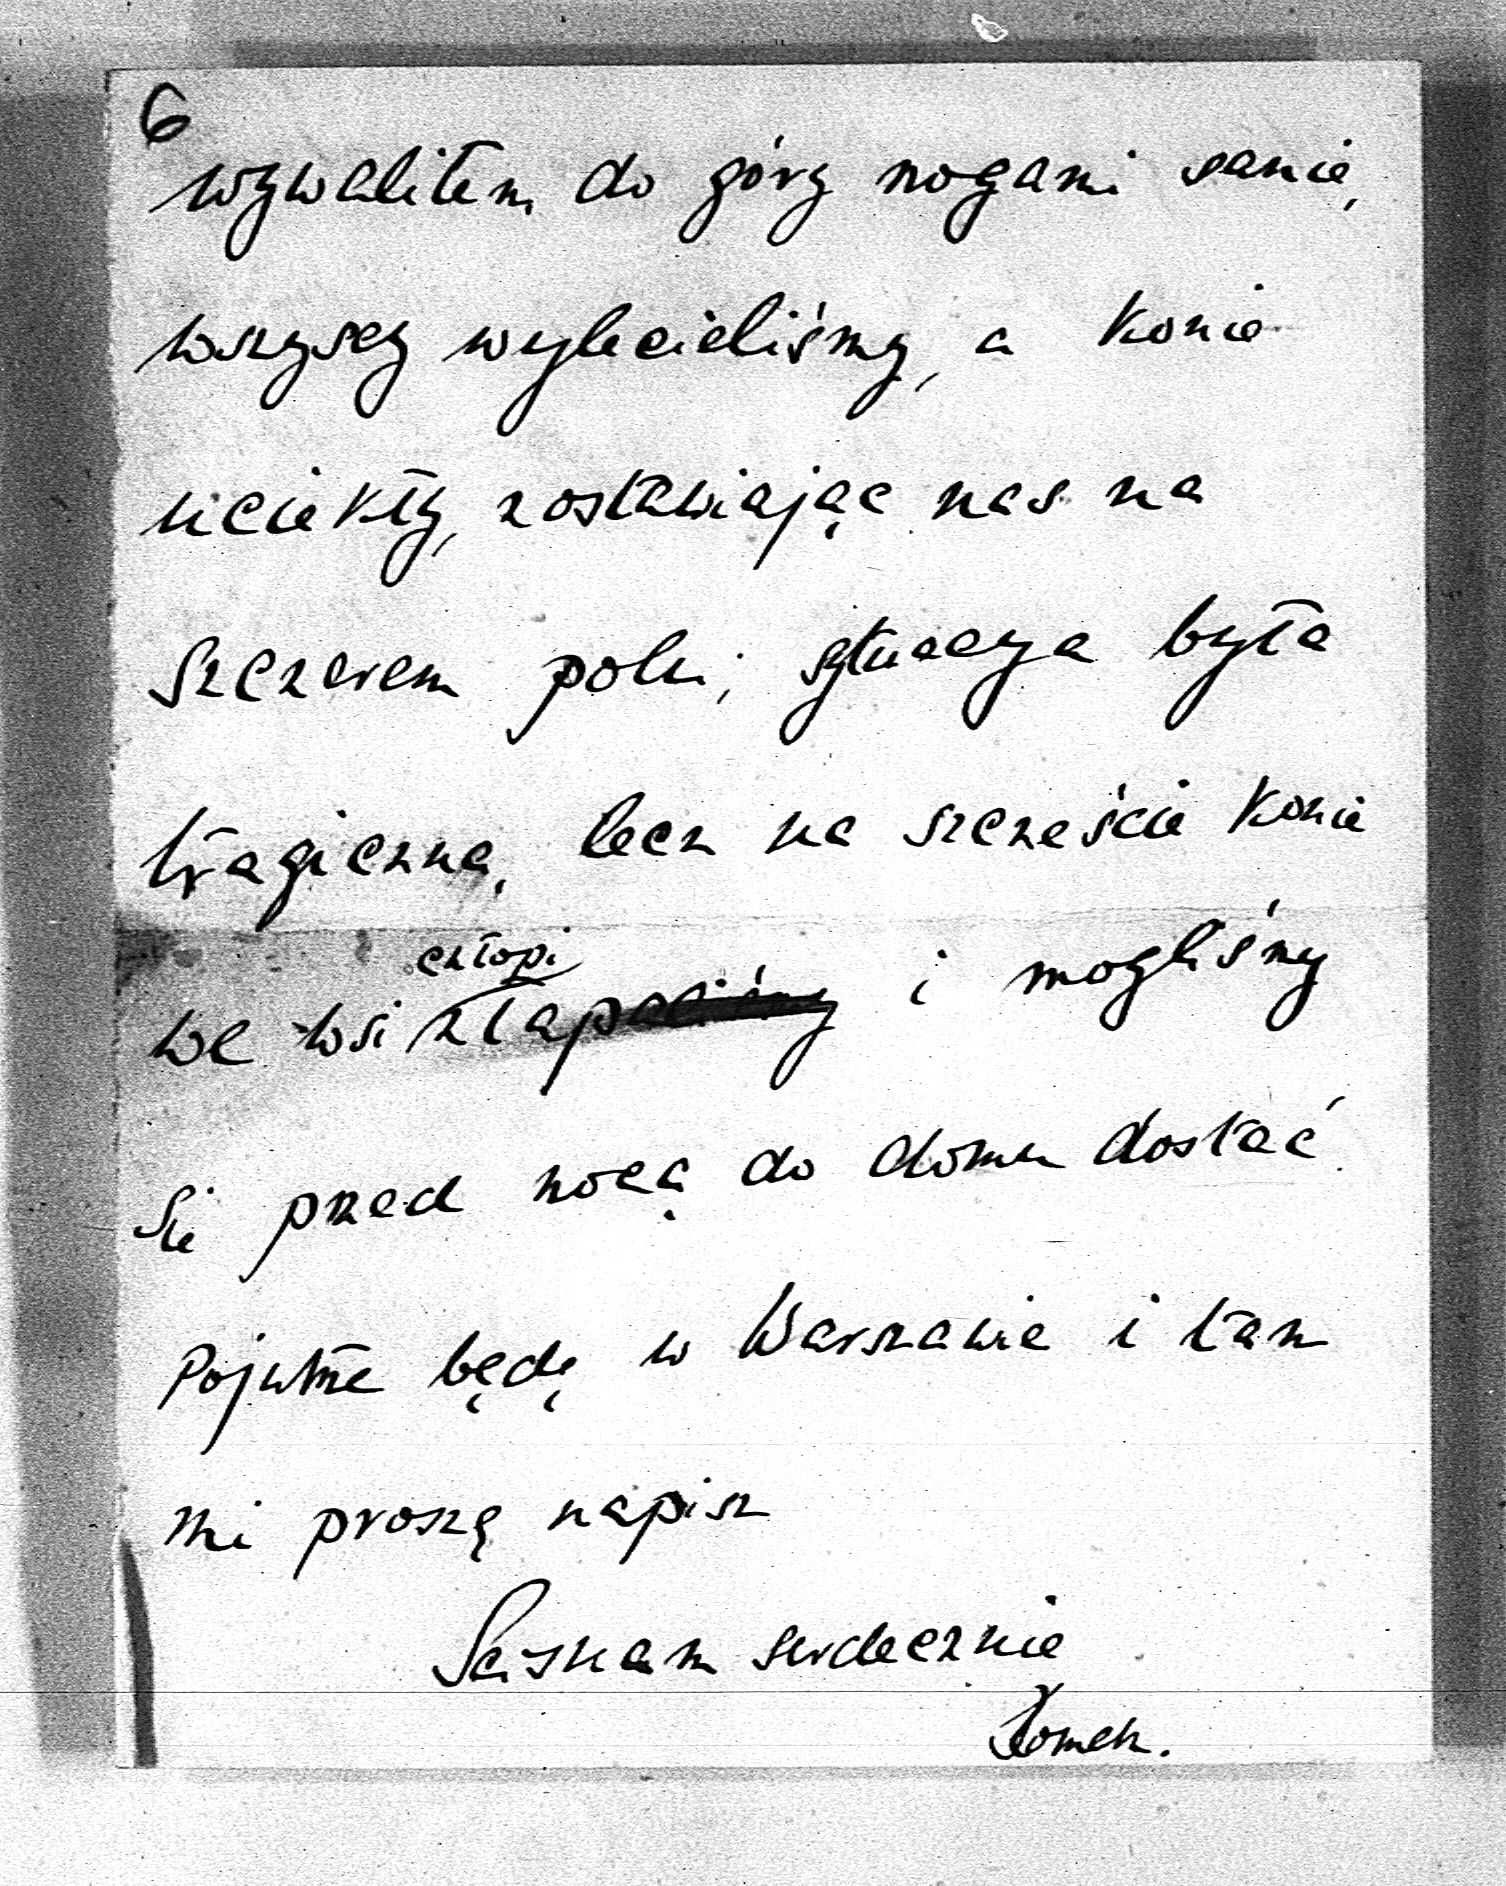 6
wywaliłem do góry nogami sanie,
wszyscy wylecieliśmy, a konie
uciekły, zostawiając nas na
szczerem polu; sytuacya była
tragiczna, lecz na szczeście konie
chłopi
we wsi złapaliśmy i mogliśmy
sie przed nocą do domu dostać.
Pojutrze będę w Warszawie i tam
mi proszę napisz
Sciskam serdecznie
Tomek.